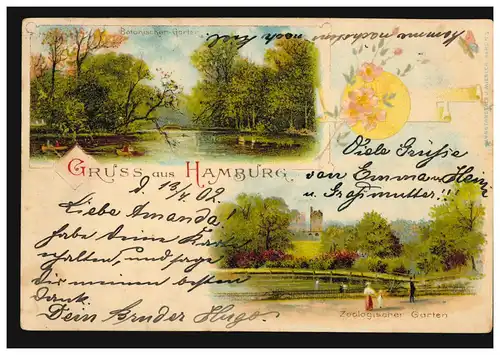 Botanischer Garten
Gruss aus Hamburg.
d. 13/4. 02
Liebe Amanda!
habe deine Karte
erhalten, und sage
dir meinen besten
Dank.
Dein Bruder Hugo.
Viele Grüße
von Emma u Heinr
u. Großmutter!!
Zoologischer Garten